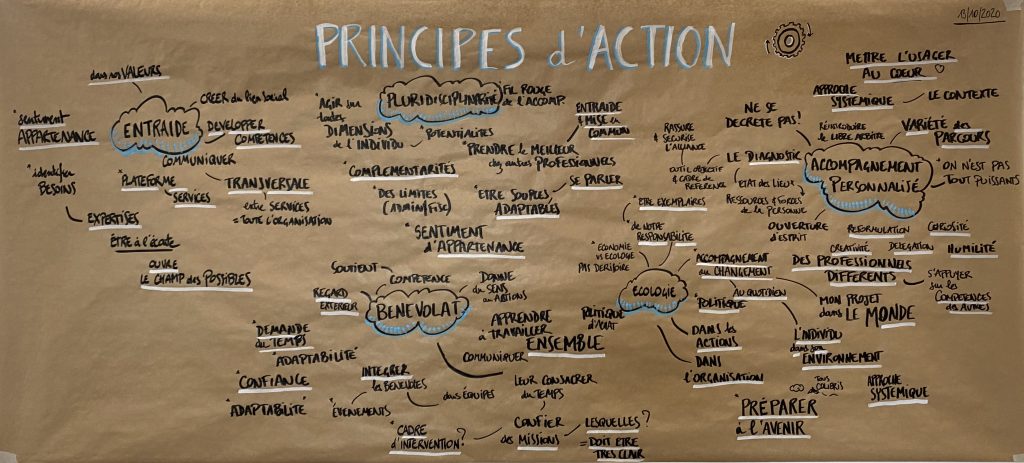 13/10/2020
PRINCIPES d'ACTION
dans nos VALEURS
ENTRAIDE
CRÉER du lien social
DEVELOPPER
COMPÉTENCES
*sentiment
APPARTENANCE
*identifier
BESOINS
EXPERTISES
COMMUNIQUER
*PLATEFORME
SERVICES
TRANSVERSALE
entre SERVICES
= TOUTE L'ORGANISATION
ÊTRE à l'écoute
OUVRE
LE CHAMP des POSSIBLES
PLURIDISCIPLINARITÉ
FIL ROUGE
de l'ACCOMP.
*AGIR sur
toutes
DIMENSIONS
de l'INDIVIDU
*POTENTIALITÉS
ENTRAIDE
& MISE en
COMMUN
PRENDRE LE MEILLEUR
chez autres PROFESSIONNELS
SE PARLER
*COMPLÉMENTARITÉS
*DES LIMITES
(ADMIN/FISC)
*ETRE SOUPLES
ADAPTABLES
*SENTIMENT
d'APPARTENANCE
METTRE L'USAGER
AU COEUR
APPROCHE
SYSTEMIQUE
LE CONTEXTE
NE SE
DECRETE PAS!
RÉINTRODUIRE
LE LIBRE ARBITRE
VARIÉTÉ des
PARCOURS
ACCOMPAGNEMENT
PERSONNALISÉ
*ON N'EST PAS
TOUT PUISSANTS
RASSURE
& SÉCURISE
L'ALLIANCE
LE DIAGNOSTIC
OUTIL OBJECTIF
& CADRE de
RÉFÉRENCE
ETAT des LIEUX
RESSOURCES & FORCES
de la PERSONNE
OUVERTURE
D'ESPRIT
REFORMULATION
CURIOSITÉ
CRÉATIVITÉ
DELEGATION
HUMILITÉ
DES PROFESSIONNELS
DIFFERENTS
S'APPUYER
sur les
COMPETENCES
des AUTRES
*ETRE EXEMPLAIRES
*de NOTRE
RESPONSABILITÉ
*ECONOMIE
vs ECOLOGIE
PAS DERISOIRE
ECOLOGIE
ACCOMPAGNEMENT
au CHANGEMENT
AU QUOTIDIEN
*POLITIQUE
POLITIQUE
d'ACHAT
DANS les
ACTIONS
DANS
l'ORGANISATION
MON PROJET
dans LE MONDE
L'INDIVIDU
dans son
ENVIRONNEMENT
TOUS
COLIBRIS
APPROCHE
SYSTEMIQUE
*PRÉPARER
à l'AVENIR
BENEVOLAT
SOUTIENT
COMPÉTENCE
DONNE
du SENS
aux ACTIONS
REGARD
EXTÉRIEUR
APPRENDRE
à TRAVAILLER
ENSEMBLE
COMMUNIQUER
*DEMANDE
du TEMPS
*ADAPTABILITÉ
*CONFIANCE
*ADAPTABILITÉ
INTEGRER
les BENEVOLES
dans ÉQUIPES
*EVENEMENTS
LEUR CONSACRER
du TEMPS
CONFIER
des MISSIONS
LESQUELLES?
= DOIT ETRE
TRES CLAIR
*CADRE
d'INTERVENTION?